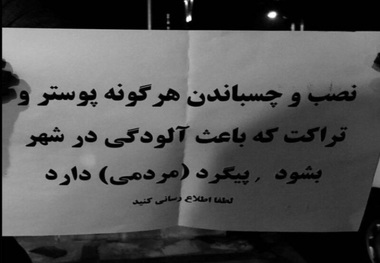 نصب و چسباندن هرگونه پوستر و
تراکت که باعث آلودگی در شهر
بشود , پیگرد (مردمی) دارد
لطفا اطلاع رسانی کنید